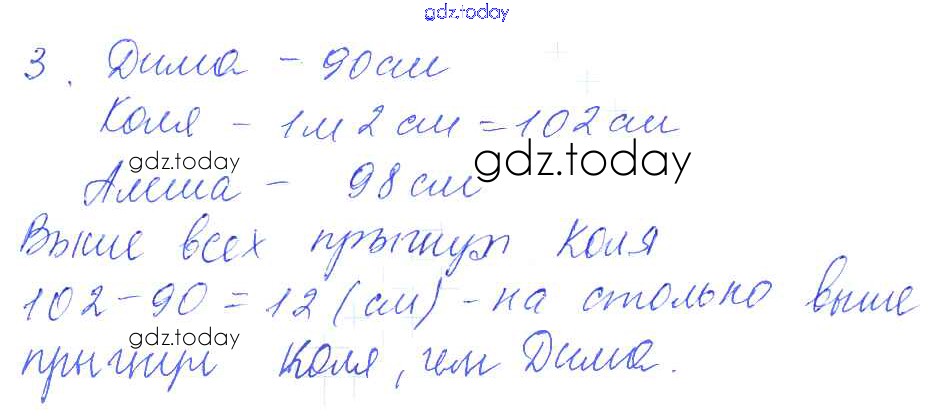 gdz.today
3. Дима - 90см
Коля - 1м 2см = 102см
gdz.today gdz.today
Алёша - 98 см
Выше всех прыгнул Коля
102 - 90 = 12 (см) - на столько выше
gdz.today gdz.today
прыгнул Коля, чем Дима.